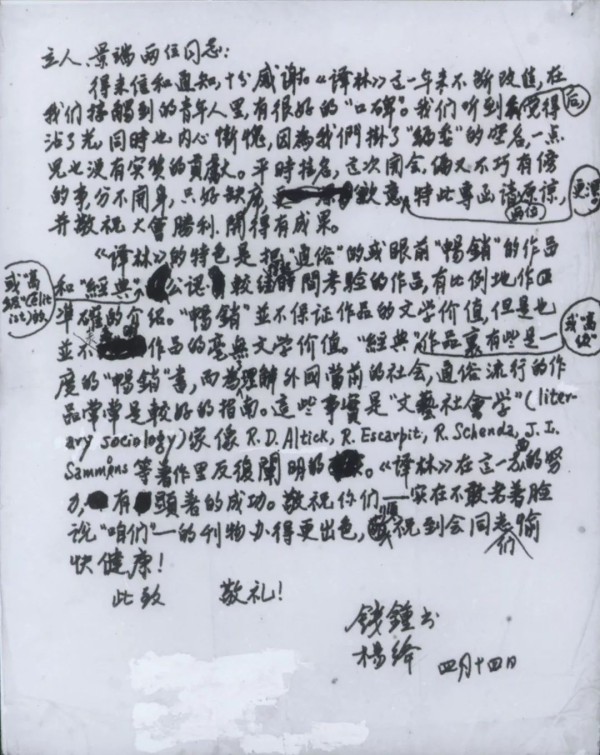 立人、景端两位同志：
得来信和通知，十分感谢。《译林》这一年来不断改进，在
我们接触到的青年人里，有很好的“口碑”。我们听到后觉得
沾了光，同时也内心惭愧，因為我們掛了“編委”的空名，一点
兒也没有实质的貢獻。平時挂名，这次開会，偏又不巧有傍
的事，分不開身，只好缺席，更深歉意，特此專函请两位原諒，
并敬祝大會勝利，開得有成果。
《译林》的特色是把“通俗”的或眼前“暢銷”的作品
和“經典”或“高級”(elitist)的公认較经時間考驗的作品，有比例地作
準確的介绍。“暢銷”並不保证作品的文学价值，但是也
並不作品的毫無文学价值。“經典”或“高級”作品裏有些是一
度的“暢銷”書，而為理解外国當前的社会，通俗流行的作
品常常是較好的指南。這些事實是“文藝社會学”(liter-
ary sociology)家像R.D. Altick, R. Escarpit, R. Schenda, J. I.
Sammons等著作里反復闡明的。《译林》在这一方面的努
力，有顕著的成功。敬祝你们——实在不敢老着脸
说“咱们”——的刊物办得更出色，順祝到会同志们愉
快健康！
此致 敬礼！
钱鍾书
楊絳 四月十四日